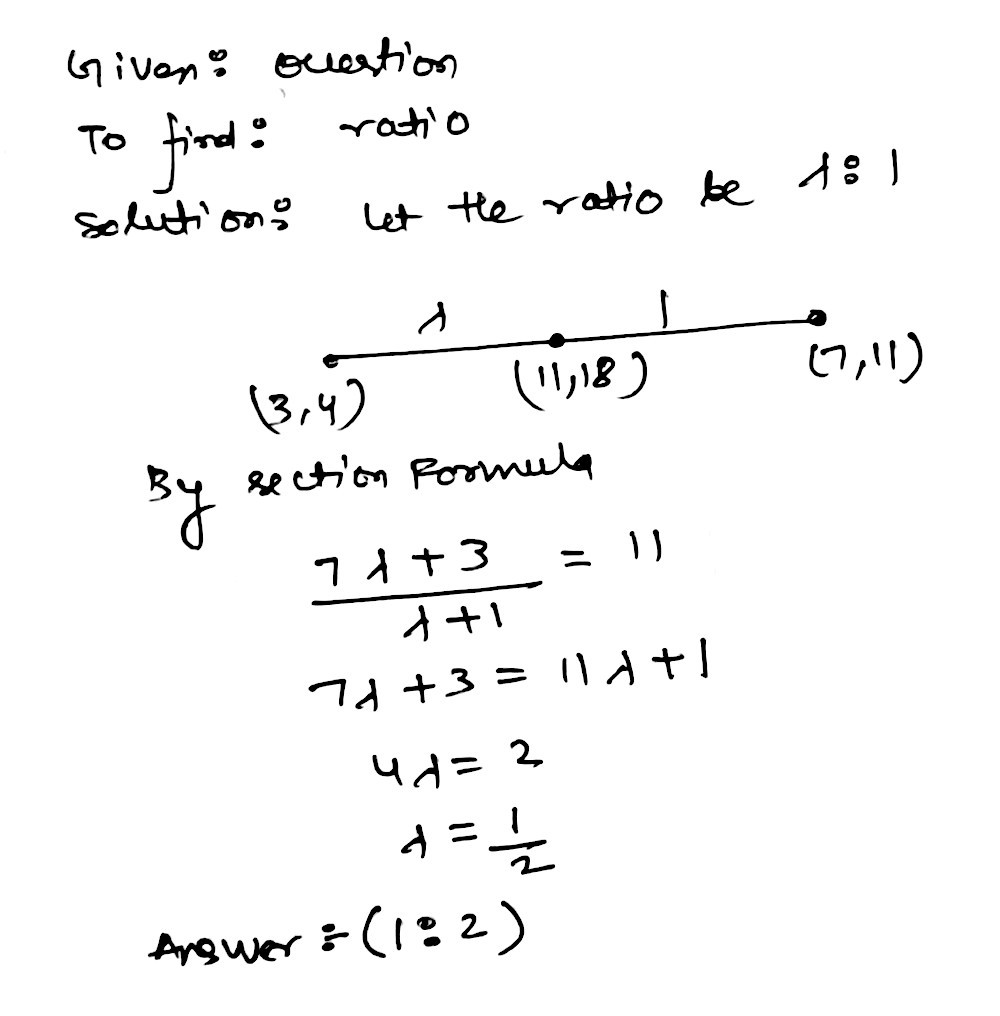 Given: question
To find: ratio
solution: let the ratio be λ:1
λ 1
(3,4) (11,18) (7,11)
By section Formula
7λ+3 / λ+1 = 11
7λ+3 = 11λ+1
4λ = 2
λ = 1/2
Answer :- (1:2)